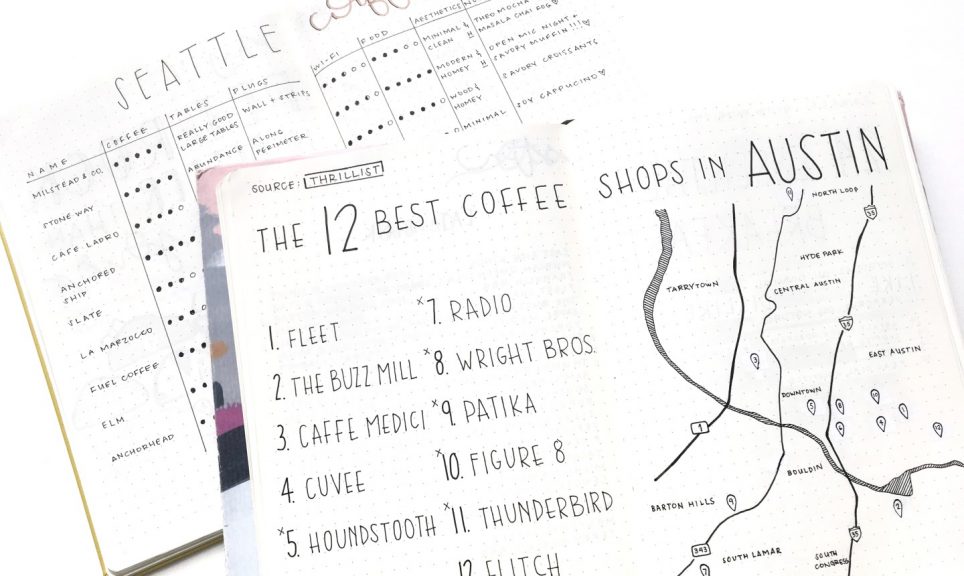 SEATTLE
NAME COFFEE TABLES PLUGS WI-FI FOOD AESTHETICS
MILSTEAD & CO. REALLY GOOD LARGE TABLES WALL + STRIPS MINIMAL & CLEAN THEO MOCHA MASALA CHAI FOG ♡
STONE WAY ABUNDANCE ALONG PERIMETER MODERN & HOMEY OPEN MIC NIGHT + SAVORY MUFFIN!!!♡
CAFE LADRO WOOD & HOMEY SAVORY CROISSANTS
ANCHORED SHIP MINIMAL SOY CAPPUCINO♡
SLATE
LA MARZOCCO
FUEL COFFEE
ELM
ANCHORHEAD
SOURCE: THRILLIST
THE 12 BEST COFFEE SHOPS IN AUSTIN
1. FLEET
2. THE BUZZ MILL
3. CAFFE MEDICI
4. CUVEE
x5. HOUNDSTOOTH
x7. RADIO
x8. WRIGHT BROS.
x9. PATIKA
x10. FIGURE 8
x11. THUNDERBIRD
12. FLITCH
NORTH LOOP
35
HYDE PARK
TARRYTOWN
CENTRAL AUSTIN
35
EAST AUSTIN
3
DOWNTOWN
1
BOULDIN
BARTON HILLS
9
2
343
SOUTH LAMAR
7
SOUTH CONGRESS
35